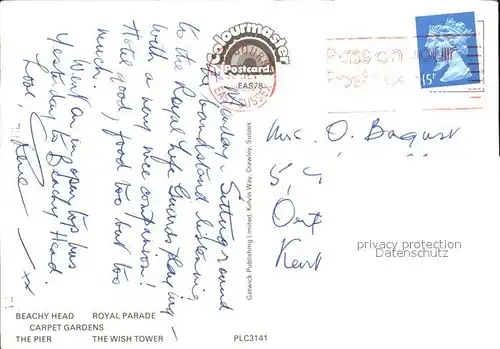 Sunday - Sitting round
the bandstand listening
to the Royal Life Guards playing -
with a very nice companion!
Hotel good, food too but too
much.
Went on an open top bus
Yesterday to Beachy Head.
Love,
xx
Colourmaster
Postcards
EAS78
Gatwick Publishing Limited, Kelvin Way, Crawley, Sussex
SUSSEX
Pass on your
15P
Mrs. O. Bagust
5,
Kent
privacy protection
Datenschutz
BEACHY HEAD ROYAL PARADE
CARPET GARDENS
THE PIER THE WISH TOWER PLC3141